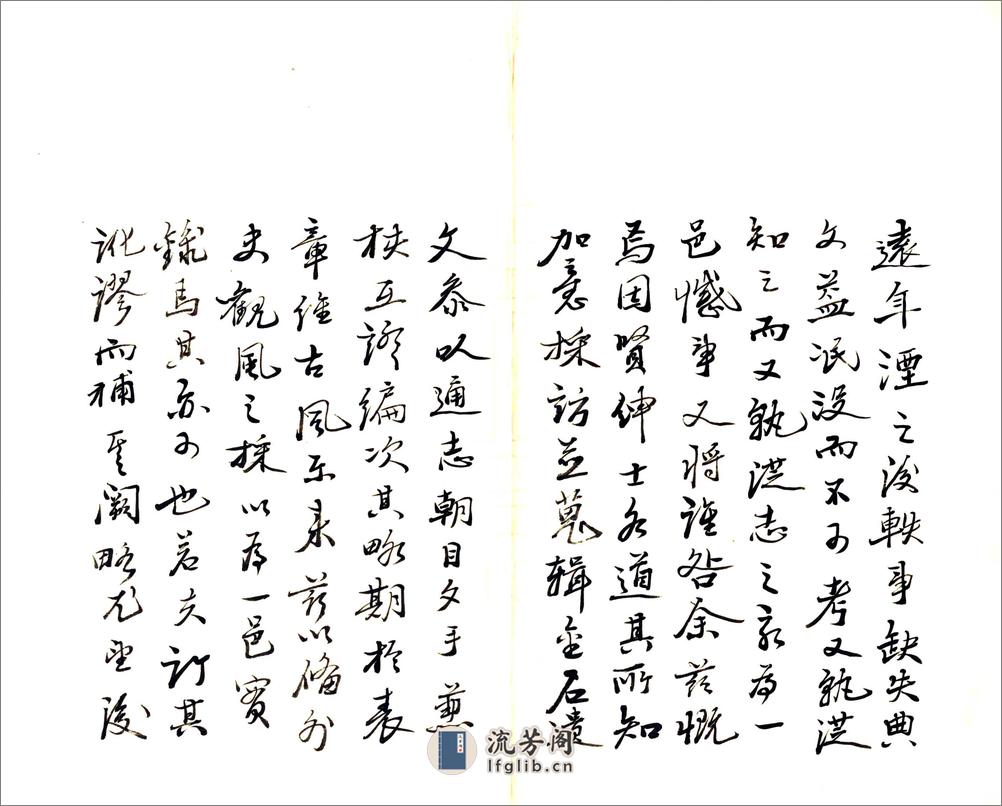 遠年湮之後軼事缺失典
文益泯没而不可考又孰從
知之而又孰從志之為一
邑憾事又將誰咎余茲慨
焉因賢紳士各道其所知
加意採訪並蒐輯金石遺
文叅以通志朝目夕手
校互證編次其略期於表
章維古風示來茲以備外
史觀風之採以為一邑實
錄焉其亦可也若夫訂其
訛謬而補其闕略尤望後
流芳阁
lfglib.cn